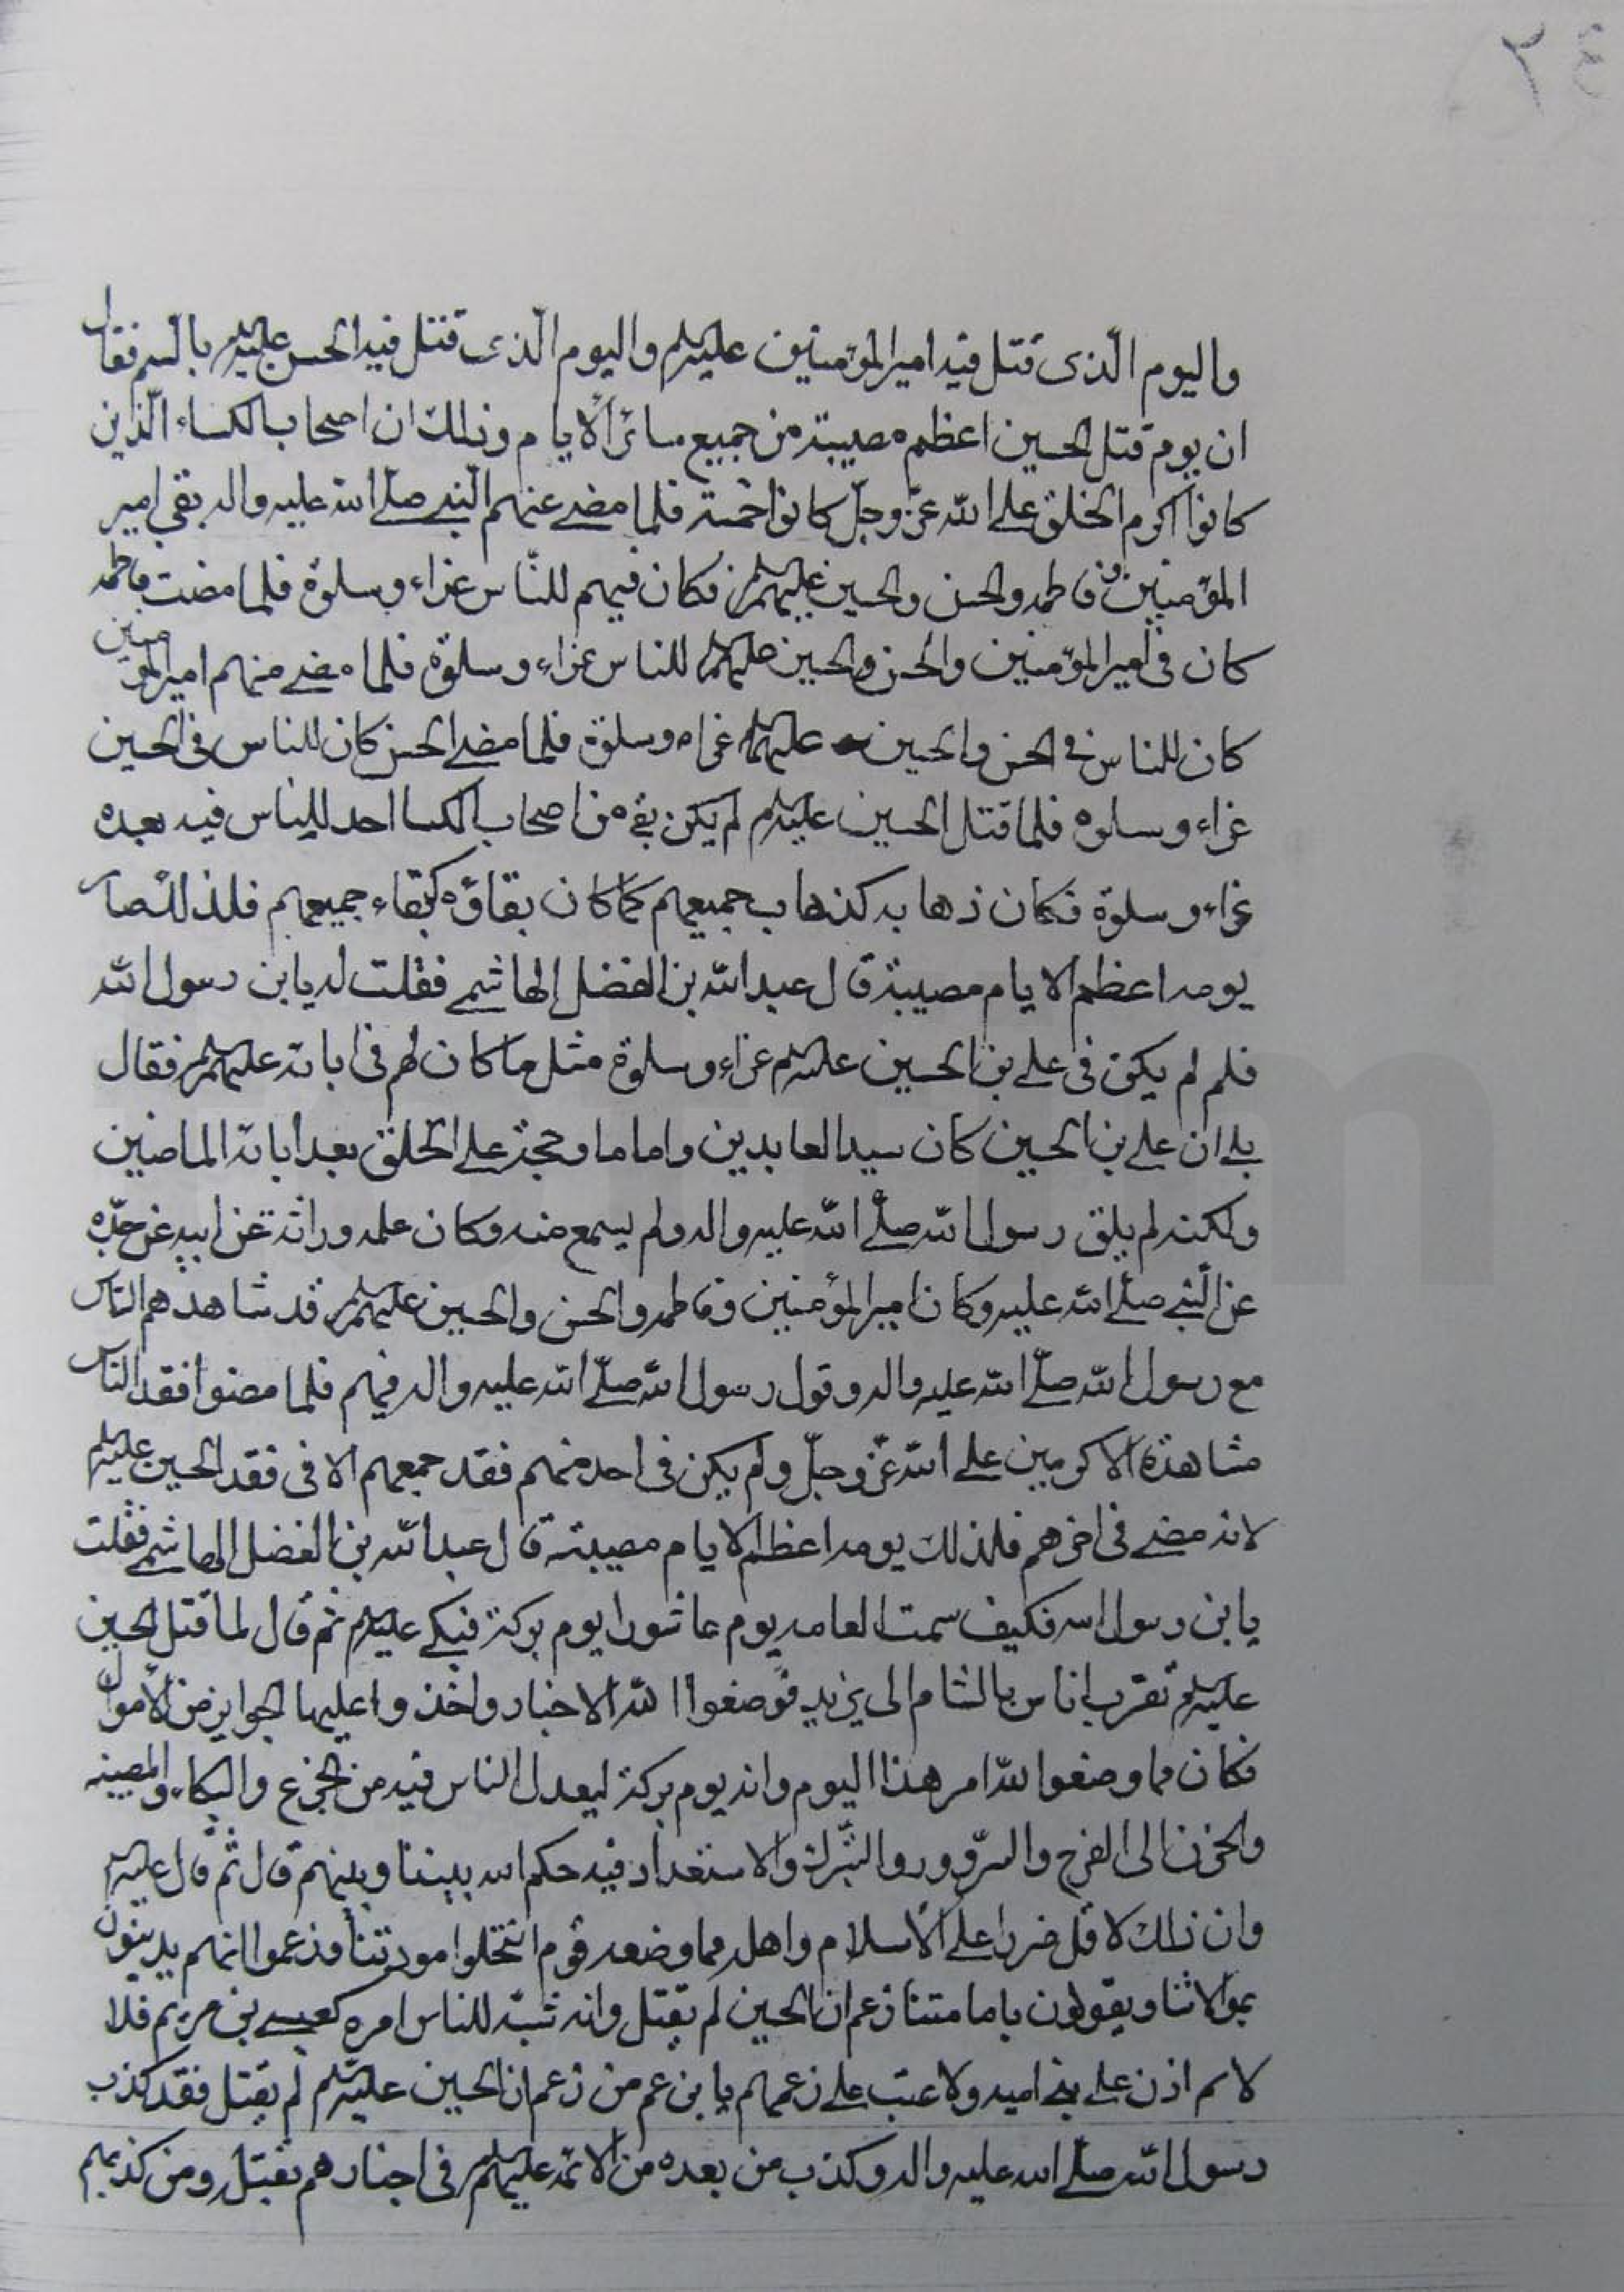 ٢٤
واليوم الّذى قتل فيه اميرالمؤمنين عليه السلم واليوم الّذى قتل فيه الحسن عليه السلم بالسم فقال
ان يوم قتل الحسين اعظم مصيبة من جميع سائر الايام وذلك ان اصحاب الكساء الّذين
كانوا اكرم الخلق على الله عزّ وجلّ كانوا خمسة فلما مضى عنهم النبى صلّى الله عليه واله بقى امير
المؤمنين وفاطمه والحسن والحسين عليهم السلم فكان فيهم للنّاس عزاء وسلوة فلما مضت فاطمه
كان فى اميرالمؤمنين والحسن والحسين عليهم السلم للناس عزاء وسلوة فلما مضى منهم اميرالمؤمنين
كان للناس فى الحسن والحسين عليهما السلم عزاء وسلوة فلما مضى الحسن كان للناس فى الحسين
عزاء وسلوه فلما قتل الحسين عليه السلم لم يكن بقى من اصحاب الكسا احد للناس فيه بعده
عزاء وسلوة فكان ذهابه كذهاب جميعهم كما كان بقاؤه كبقاء جميعهم فلذلك صار
يومه اعظم الايام مصيبة قال عبدالله بن الفضل الهاشمى فقلت له يابن رسول الله
فلم لم يكن فى على بن الحسين عليه السلم عزاء وسلوة مثل ما كان لهم فى ابائه عليهم السلم فقال
بلى ان على بن الحسين كان سيد العابدين واماما وحجة على الخلق بعد ابائه الماضين
ولكنه لم يلق رسول الله صلّى الله عليه واله ولم يسمع منه وكان علمه وراثة عن ابيه عن جدّه
عن النّبى صلى الله عليه وكان اميرالمؤمنين وفاطمه والحسن والحسين عليهم السلم قد شاهدهم الناس
مع رسول الله صلّى الله عليه واله وقول رسول الله صلّى الله عليه واله فيهم فلما مضوا فقد الناس
مشاهدة الاكرمين على الله عزّ وجلّ ولم يكن فى احد منهم فقد جمعهم الا فى فقد الحسين عليه السلم
لانه مضى فى اخرهم فلذلك يومه اعظم الايام مصيبة قال عبدالله بن الفضل الهاشمى فقلت
يابن رسول الله فكيف سمت العامه يوم عاشورا يوم بركة فبكى عليه السلم ثم قال لما قتل الحسين
عليه السلم تقرب اناس بالشام الى يزيد فوضعوا له الاخبار واخذوا عليها الجوايز من الاموال
فكان مما وضعوا له امر هذا اليوم وانه يوم بركة ليعدل الناس فيه من الجزع والبكاء والمصيبه
والحزن الى الفرح والسّرور والتبرك والاستعداد فيه حكم الله بيننا وبينهم قال ثم قال عليه السلم
وان ذلك لاقل ضررا على الاسلام واهله مما وضعه قوم انتحلوا مودتنا وزعموا انهم يدينون
بموالاتنا ويقولون بامامتنا زعم ان الحسين لم يقتل وانه شبّه للناس امره كعيسى بن مريم فلا
لاىم اذن على بنى اميه ولا عتب على زعمهم يابن عم من زعم ان الحسين عليه السلم لم يقتل فقد كذب
رسول الله صلّى الله عليه واله وكذب من بعده من الائمّه عليهم السلم فى اخبارهم بقتله ومن كذبهم